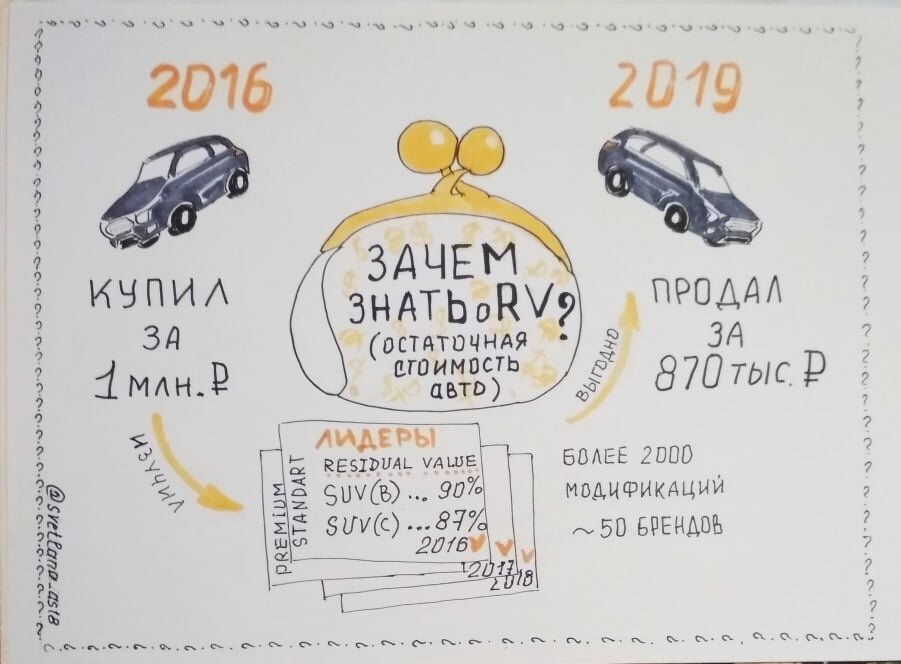 2016
КУПИЛ
ЗА
1 МЛН. ₽
ИЗУЧИЛ
ЗАЧЕМ
ЗНАТЬ о RV?
(ОСТАТОЧНАЯ
СТОИМОСТЬ
АВТО)
2019
ПРОДАЛ
ЗА
870 ТЫС. ₽
ВЫГОДНО
PREMIUM
STANDART
ЛИДЕРЫ
RESIDUAL VALUE
SUV(B)... 90%
SUV(C)...87%
2016
2017
2018
БОЛЕЕ 2000
МОДИФИКАЦИЙ
~50 БРЕНДОВ
@svetlana_as18